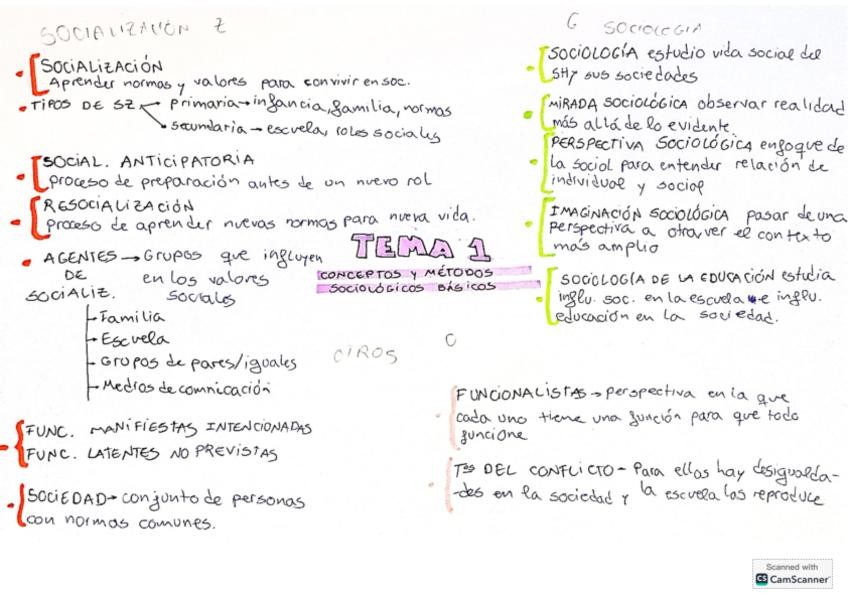 SOCIALIZACIÓN Z
SOCIALIZACIÓN
Aprender normas y valores para convivir en soc.
TIPOS DE SZ primaria → infancia, familia, normas
secundaria → escuela, roles sociales
SOCIAL. ANTICIPATORIA
proceso de preparación antes de un nuevo rol
RESOCIALIZACIÓN
proceso de aprender nuevas normas para nueva vida.
AGENTES → GRUPOS que influyen
DE en los valores
SOCIALIZ. sociales
Familia
Escuela
Grupos de pares/iguales
Medios de comnicación
FUNC. MANIFIESTAS INTENCIONADAS
FUNC. LATENTES NO PREVISTAS
SOCIEDAD → conjunto de personas
con normas comunes.
TEMA 1
CONCEPTOS Y MÉTODOS
SOCIOLÓGICOS BÁSICOS
G SOCIOLOGIA
SOCIOLOGÍA estudio vida social del
SH y sus sociedades
MIRADA SOCIOLÓGICA observar realidad
más allá de lo evidente
PERSPECTIVA SOCIOLÓGICA enfoque de
la social para entender relación de
individual y social
IMAGINACIÓN SOCIOLÓGICA pasar de una
perspectiva a otra ver el contexto
más amplio
SOCIOLOGÍA DE LA EDUCACIÓN estudia
influ. soc. en la escuela e influ.
educación en la sociedad.
OTROS C
FUNCIONALISTAS → perspectiva en la que
cada uno tiene una función para que todo
funcione
TS DEL CONFLICTO - Para ellos hay desigualda-
-des en la sociedad y la escuela las reproduce
Scanned with
CS CamScanner